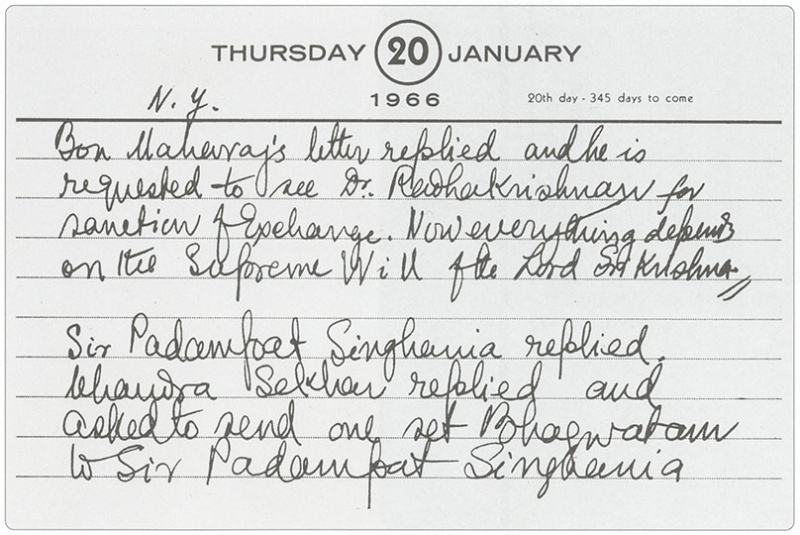 THURSDAY 20 JANUARY
N. Y.
1966
20th day - 345 days to come
Bon Maharaj's letter replied and he is
requested to see Dr. Radhakrishnan for
sanction of Exchange. Now everything depends
on the Supreme Will of the Lord Sri Krishna.
Sir Padampat Singhania replied.
Chandra Sekhar replied and
asked to send one set Bhagwatam
to Sir Padampat Singhania